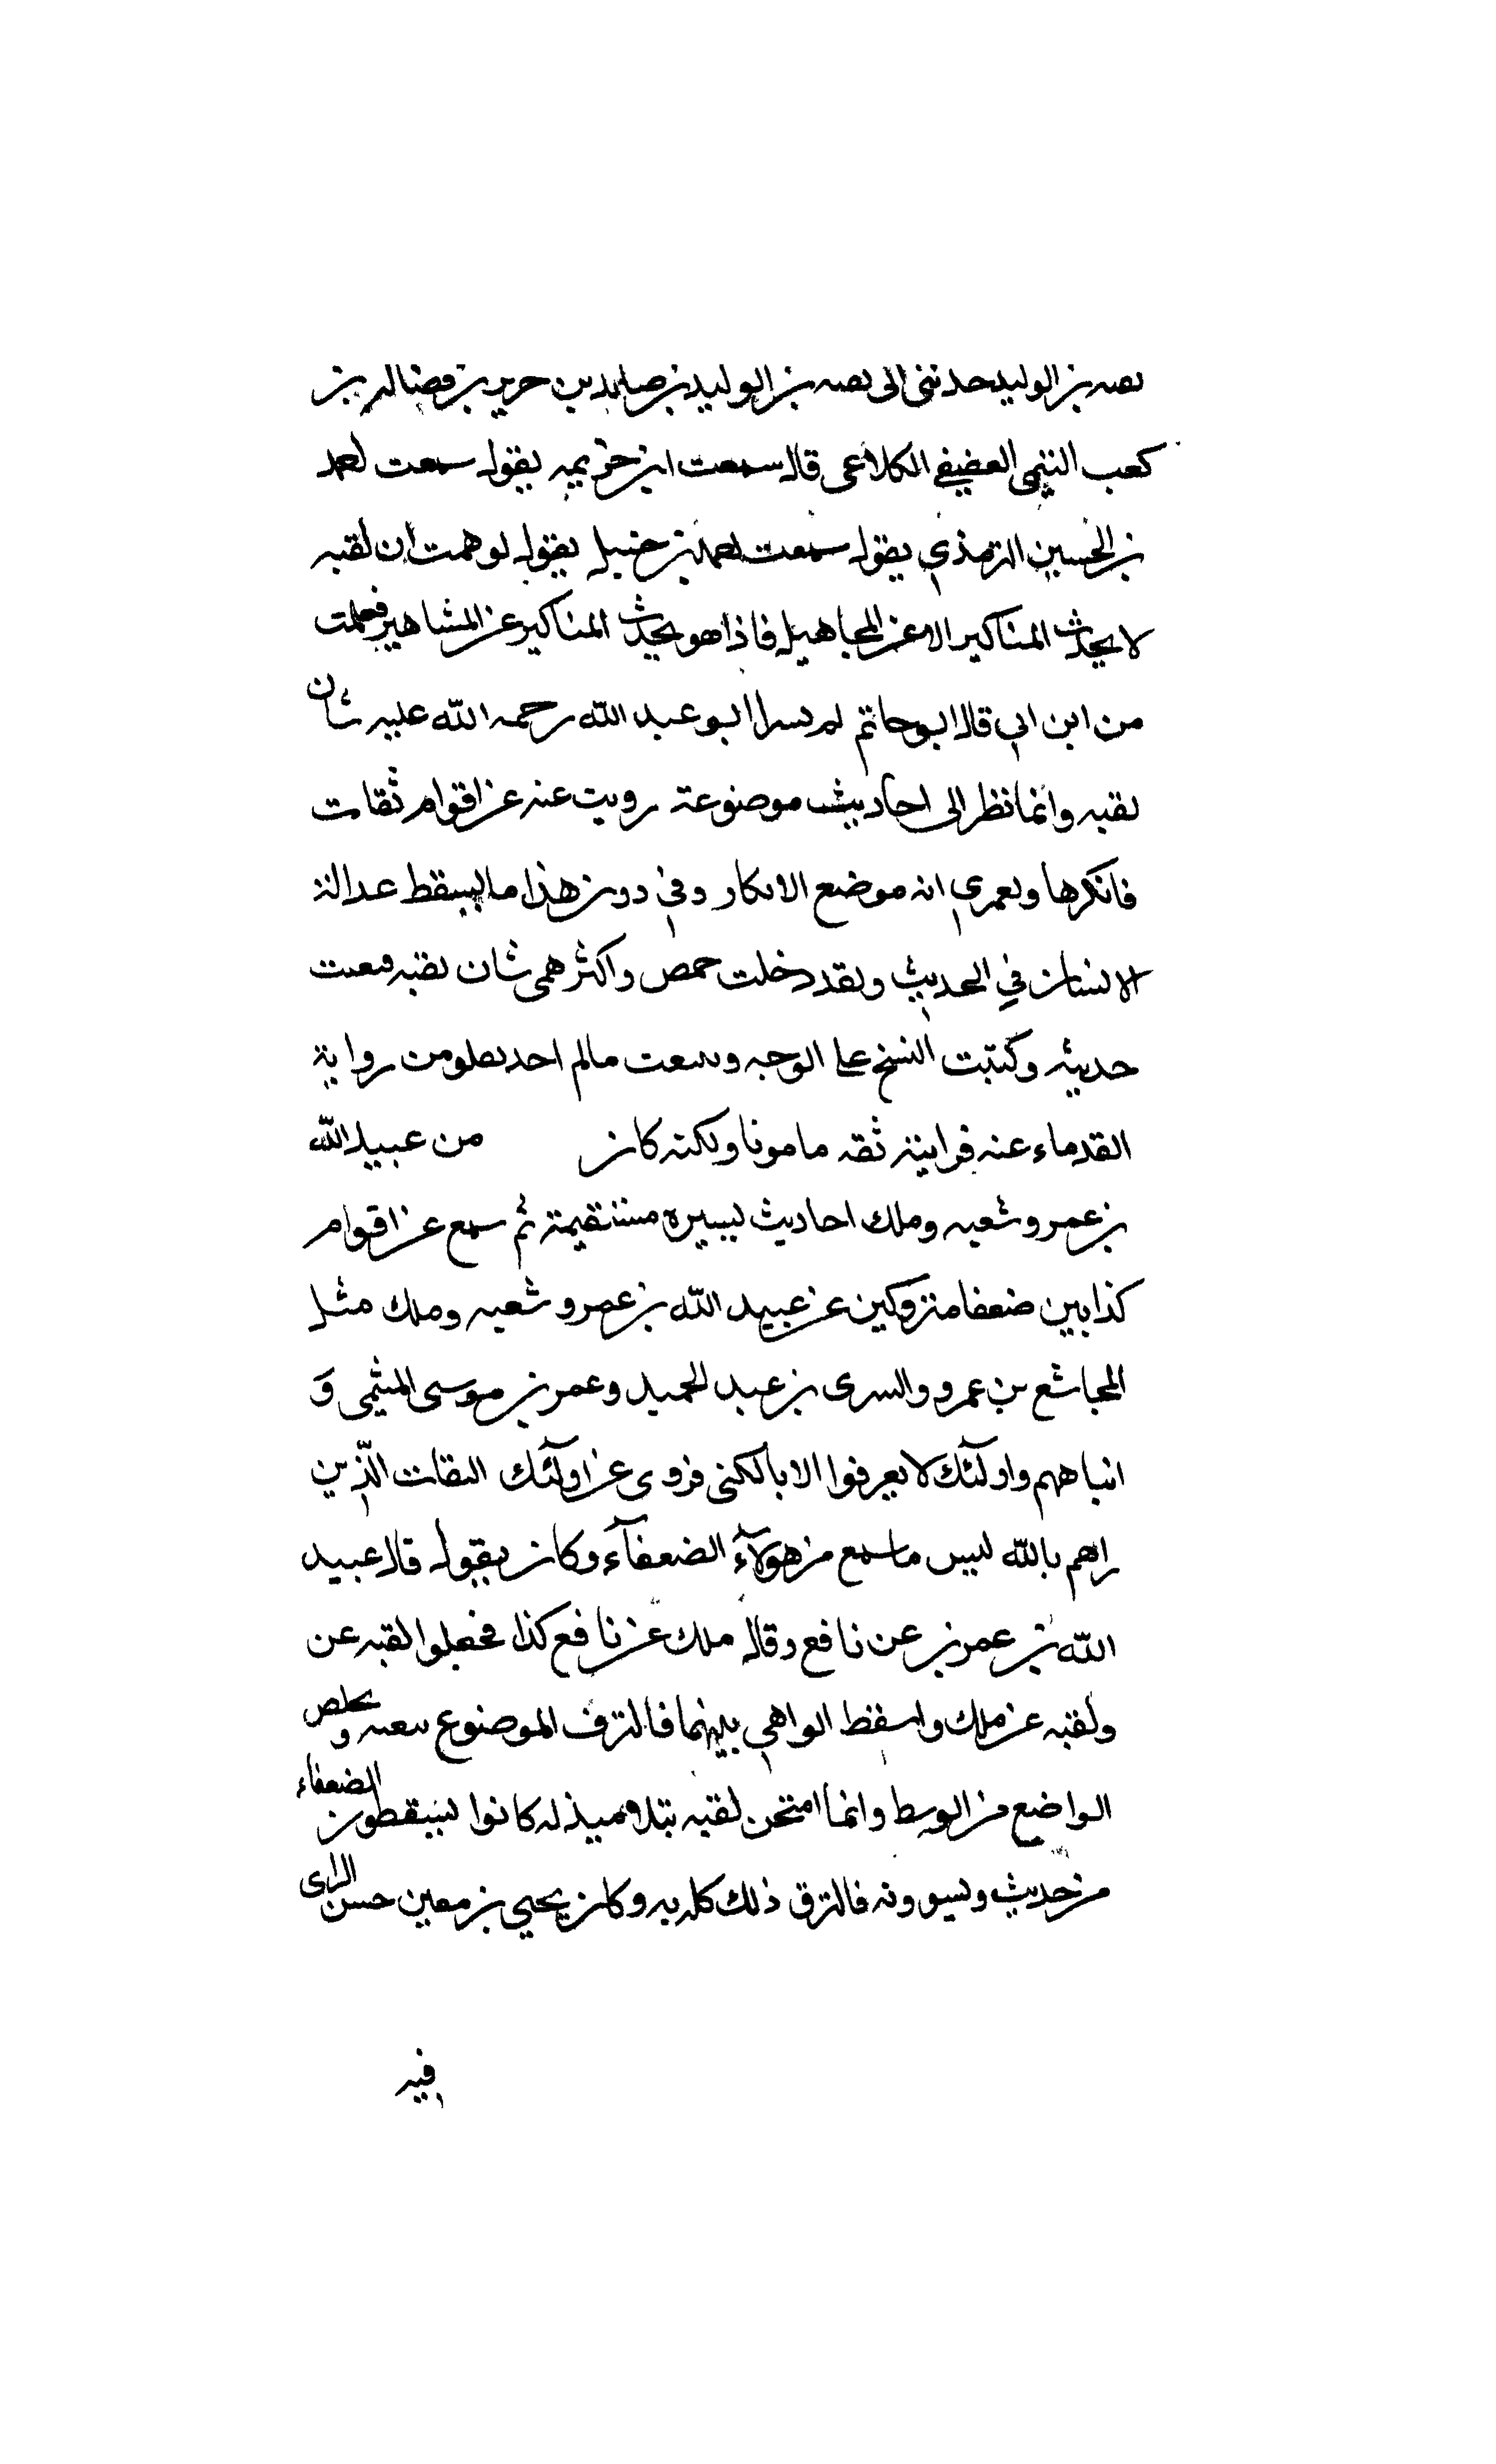 بقيه بن الوليد حدثنى ابى بقيه بن الوليد بن صايد بن حريز بن فضاله بن
كعب التيمى العضيفي الكلاعى قال سمعت ابن خزيمه يقول سمعت احمد
بن الحسين الترمذي يقول سمعت احمد بن حنبل يقول توهمت ان لقبه
لا يحدث المناكير الا عن المجاهيل فاذا هو يحدث المناكير عن المشاهير فعلمت
من اين اتى قال ابو حاتم لم يسبر ابو عبد الله رحمه الله عليه شان
لقبه وانما نظر الى احاديث موضوعة رويت عنه عن اقوام ثقات
فانكرها ولعمري انه موضع الانكار وفي دون هذا ما يسقط عدالة
الانسان في الحديث ولقد دخلت حمص واكثر همى شان لقبه فتتبعت
حديثه وكتبت النسخ على الوجه وتتبعت مالم اجد بعلو من رواية
القدماء عنه فرايته ثقه مامونا ولكنه كان من عبيد الله
بن عمر وشعبه وملك احاديث يسيره مستقيمة ثم سمع عن اقوام
كذابين ضعفا متروكين عن عبيد الله بن عمر وشعبه وملك مثل
المجاشع بن عمرو والسرى بن عبد الحميد وعمر بن موسى الميثمى و
اشباههم واولئك لا يعرفوا الا بالكنى فروى عن اولئك الثقات الذين
راهم بالله ليس ما سمع من هولآء الضعفآء وكان يقول قال عبيد
الله بن عمر بن عن نافع وقال ملك عن نافع كذا فجعلوا لقبه عن
ولقبه عن ملك واسقط الواهي بينهما فالتزق الموضوع ببقيه وتخلص
الواضع من الوسط وانما امتحن لقبه بتلاميذ له كانوا يسقطون الضعفاء
من حديث ويسوونه فالتزق ذلك كله به وكان يحيي بن معين حسن الراى
فيه